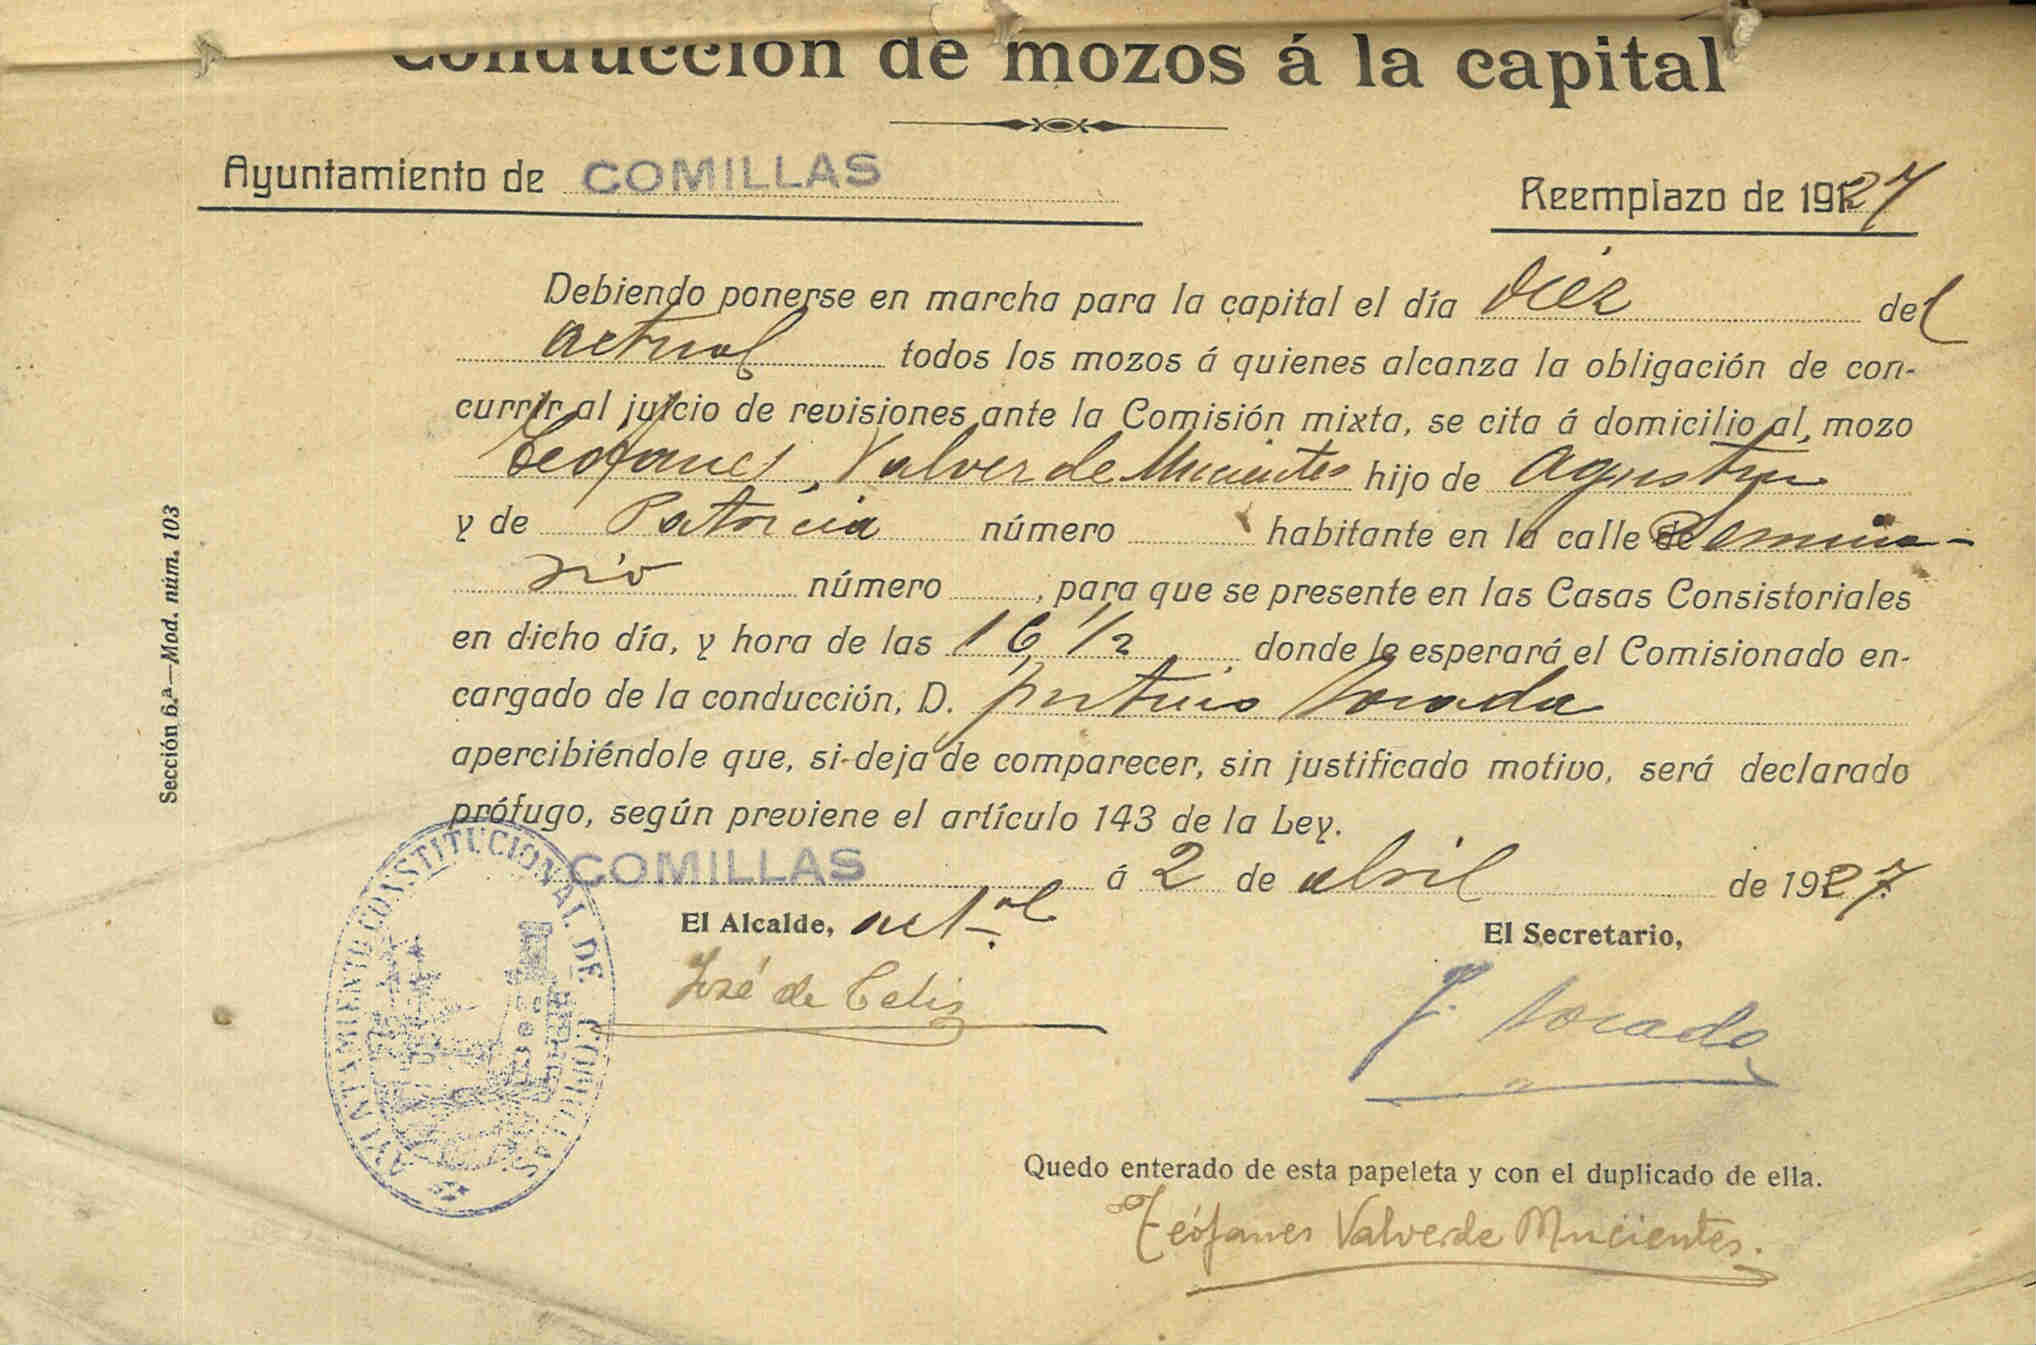 Conducción de mozos á la capital
Ayuntamiento de COMILLAS
Reemplazo de 1927
Debiendo ponerse en marcha para la capital el día diez del
actual todos los mozos á quienes alcanza la obligación de con-
currir al juicio de revisiones ante la Comisión mixta, se cita á domicilio al mozo
Teofanes Valverde Mucientes hijo de Agustin
y de Patricia número habitante en la calle de Semina-
rio número , para que se presente en las Casas Consistoriales
en dicho día, y hora de las 16 1/2 donde le esperará el Comisionado en-
cargado de la conducción, D.
apercibiéndole que, si deja de comparecer, sin justificado motivo, será declarado
prófugo, según previene el artículo 143 de la Ley.
COMILLAS á 2 de abril de 1927.
El Alcalde, actal
El Secretario,
José de Celis
AYUNTAMIENTO CONSTITUCIONAL DE COMILLAS
Quedo enterado de esta papeleta y con el duplicado de ella.
Teófanes Valverde Mucientes.
Sección 6.ª—Mod. núm. 103